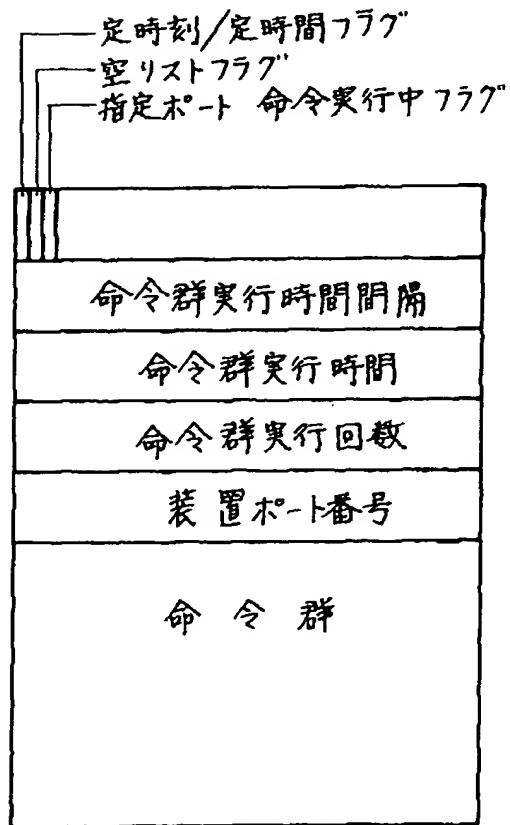 定時刻/定時間フラグ
空リストフラグ
指定ポート 命令実行中フラグ
命令群実行時間間隔
命令群実行時間
命令群実行回数
装置ポート番号
命令群